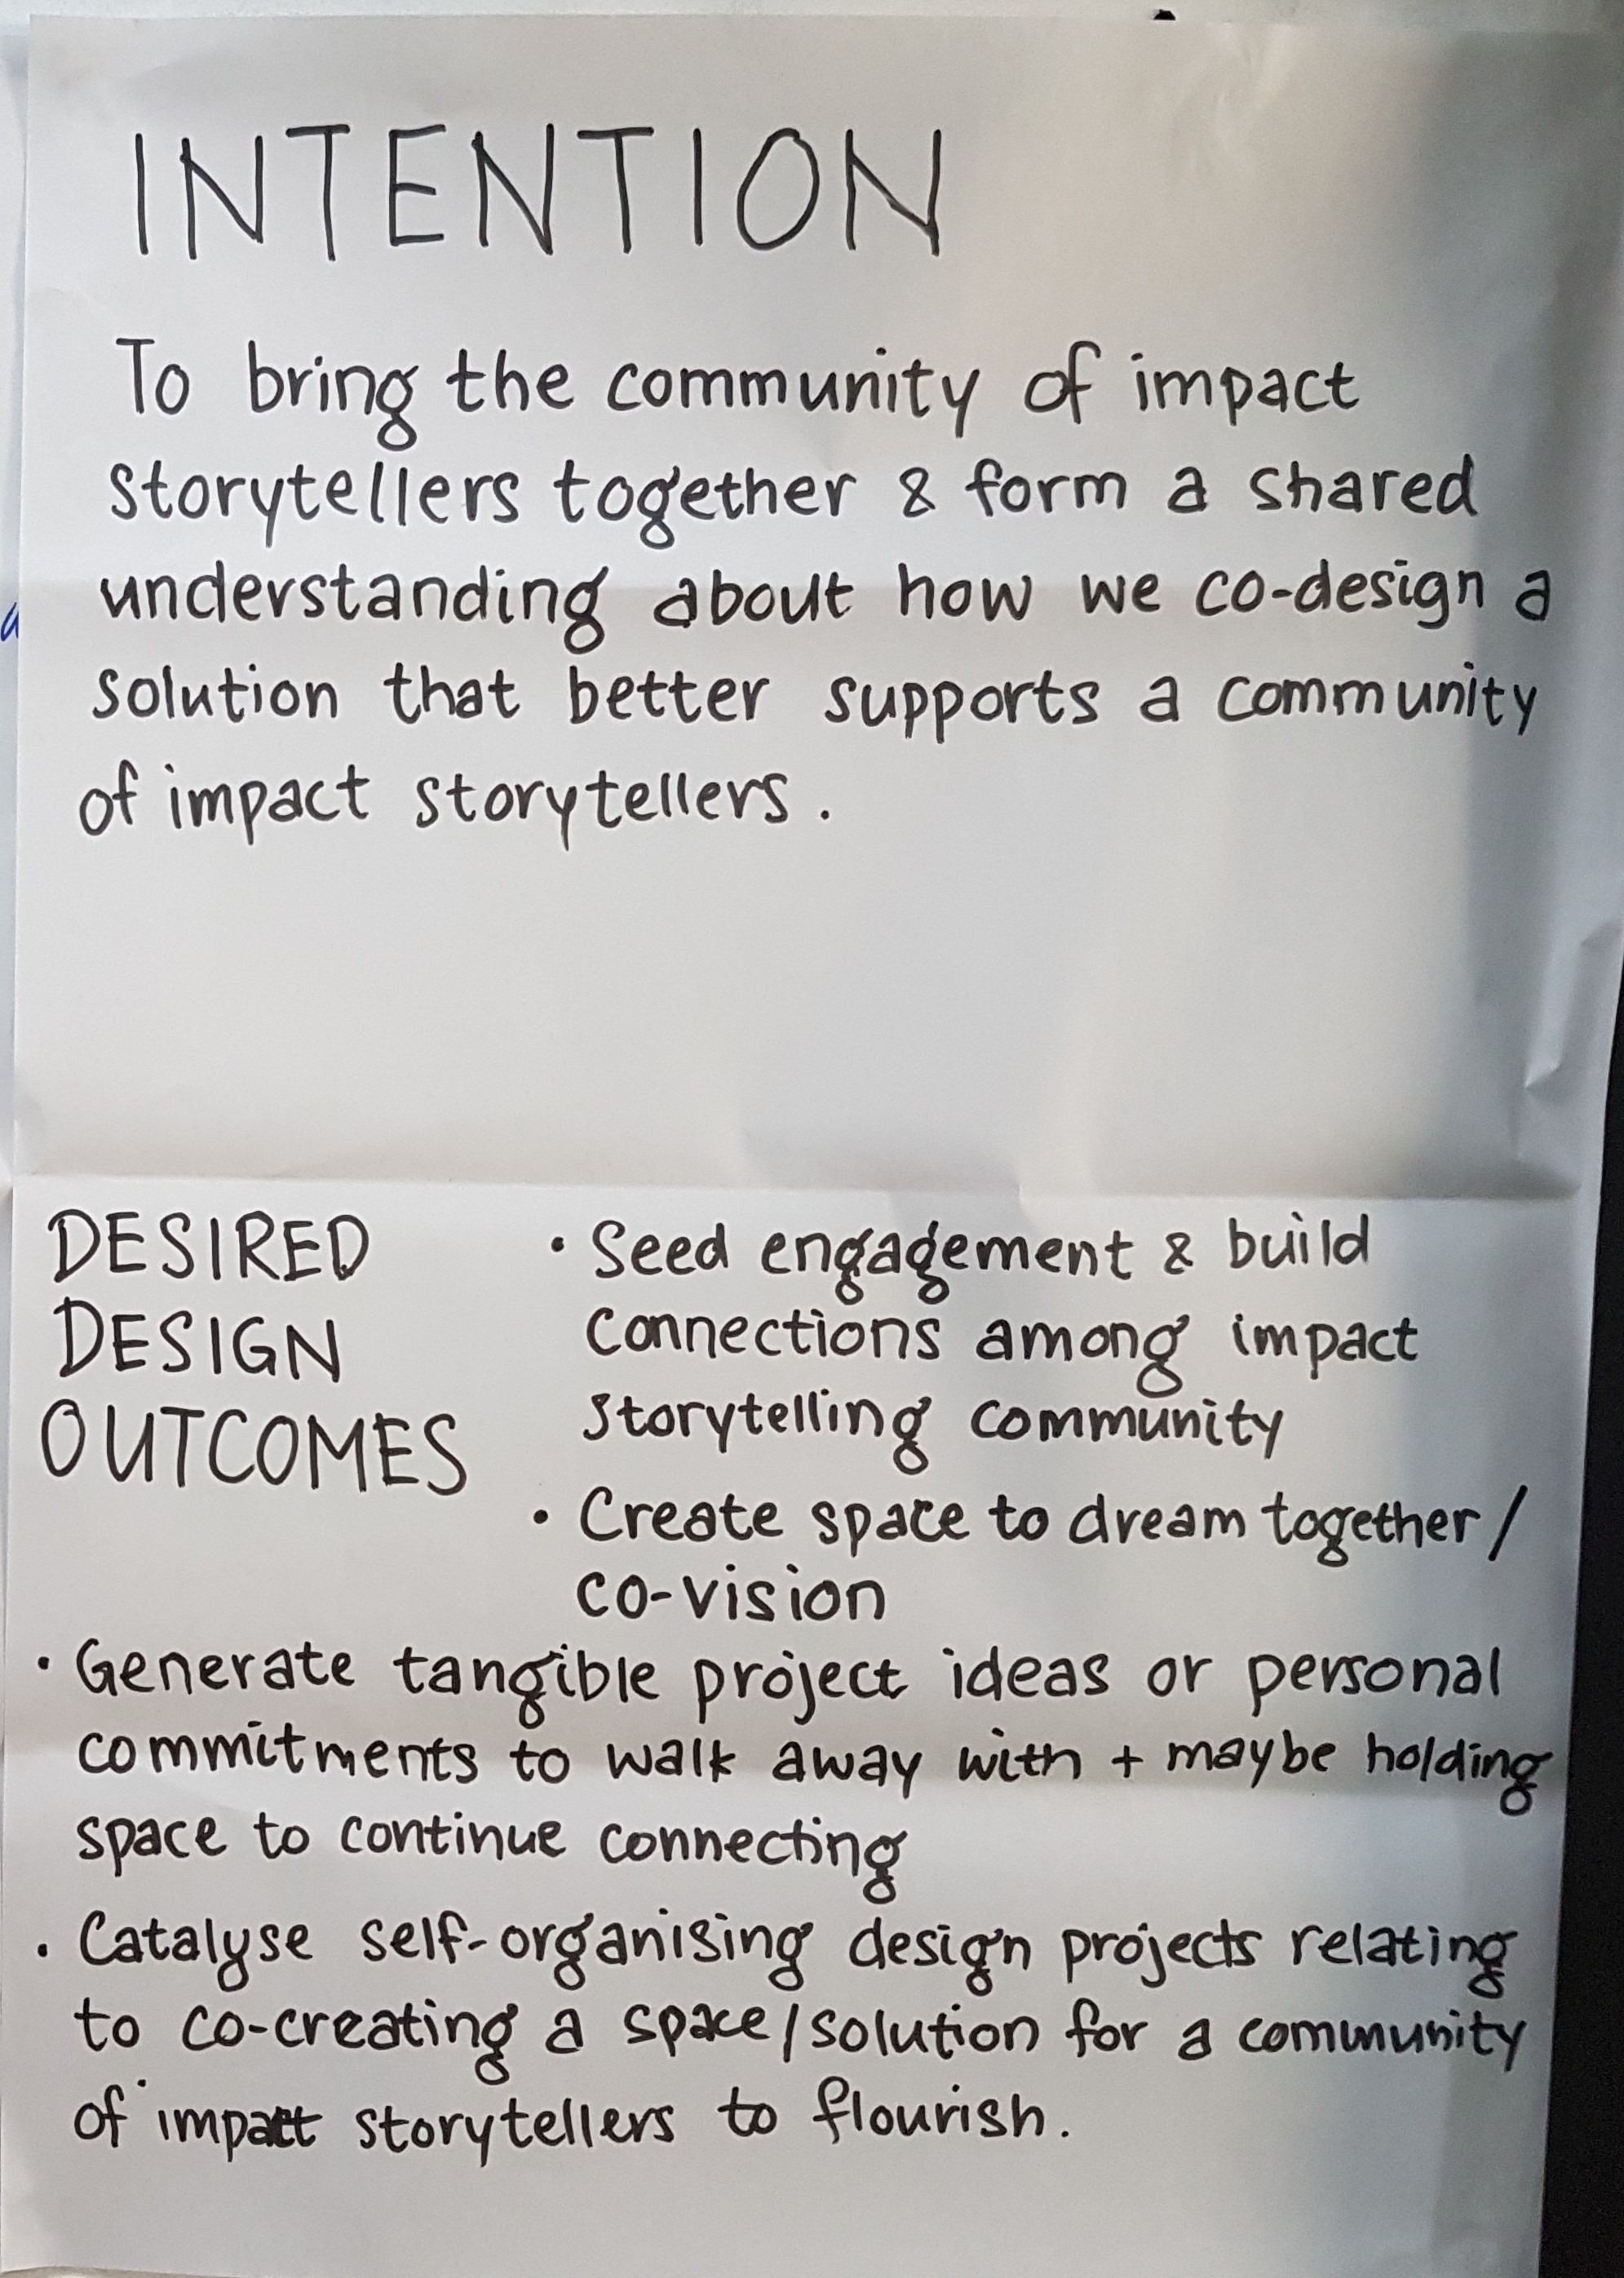 INTENTION
To bring the community of impact
storytellers together & form a shared
understanding about how we co-design a
solution that better supports a community
of impact storytellers.
DESIRED
DESIGN
OUTCOMES
• Seed engagement & build
connections among impact
storytelling community
• Create space to dream together/
co-vision
• Generate tangible project ideas or personal
commitments to walk away with + maybe holding
space to continue connecting
• Catalyse self-organising design projects relating
to co-creating a space/solution for a community
of impact storytellers to flourish.